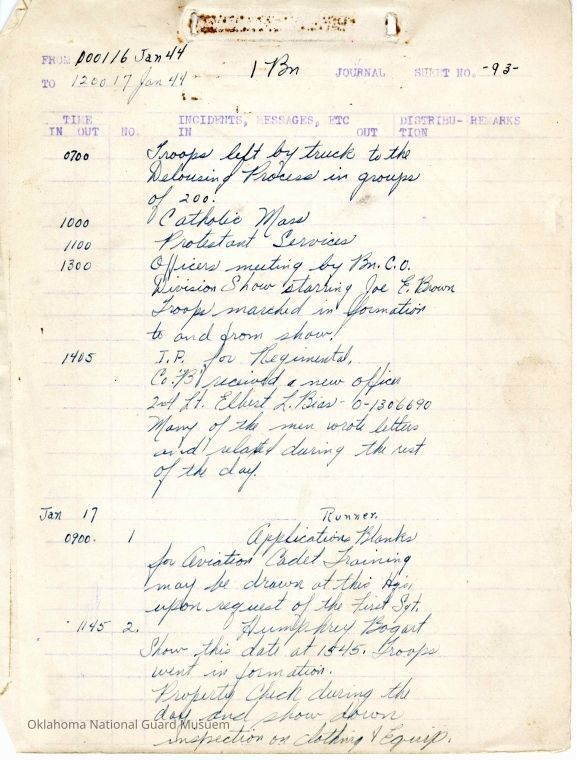 FROM 000116 Jan 44
TO 120017 Jan 44
1 Bn JOURNAL SHEET NO. -93-
TIME INCIDENTS, MESSAGES, ETC DISTRIBU- REMARKS
IN OUT NO. IN OUT TION
0700 Troops left by truck to the
Delousing Process in groups
of 200.
1000 Catholic Mass
1100 Protestant Services
1300 Officers meeting by Bn. C.O.
Division Show starring Joe E. Brown
Troops marched in formation
to and from show.
1405 I.P. for Regimental.
Co. "B" received a new officer
2nd Lt. Elbert L. Bias - O-1306690
Many of the men wrote letters
and relaxed during the rest
of the day.
Jan 17 Runner.
0900. 1 Applications Blanks
for Aviation Cadet Training
may be drawn at this Hqs,
upon request of the First Sgt.
1145 2. Humphrey Bogart
Show this date at 1545. Troops
went in formation.
Property Check during the
day and show down
inspection on clothing & Equip.
Oklahoma National Guard Museum